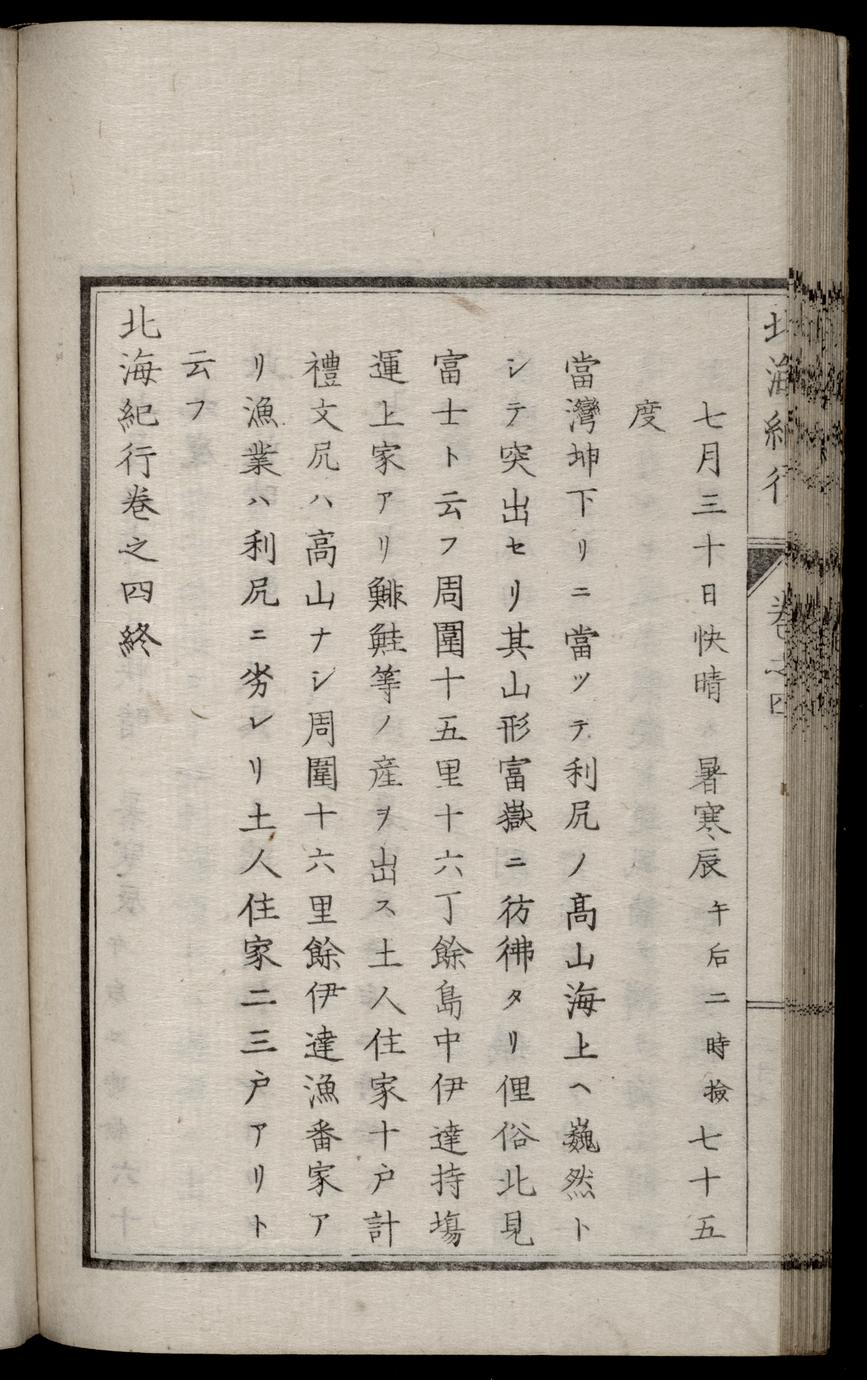 北海紀行 巻之四
七月三十日快晴 暑寒辰午后二時撿七十五
度
當灣坤下リニ當ツテ利尻ノ髙山海上ヘ巍然ト
シテ突出セリ其山形富嶽ニ彷彿タリ俚俗北見
富士ト云フ周圍十五里十六丁餘島中伊達持塲
運上家アリ鯡鮭等ノ産ヲ出ス土人住家十戸計
禮文尻ハ高山ナシ周圍十六里餘伊達漁番家ア
リ漁業ハ利尻ニ劣レリ土人住家二三戸アリト
云フ
北海紀行巻之四終